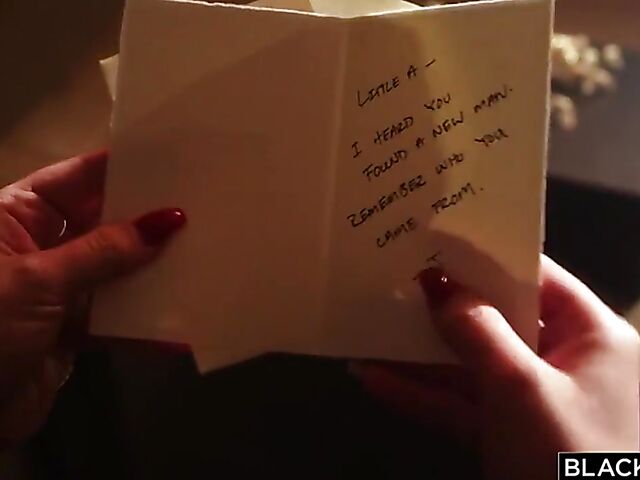 LITTLE A —
I HEARD YOU
FOUND A NEW MAN.
REMEMBER WHO YOU
CAME FROM.
BLACK